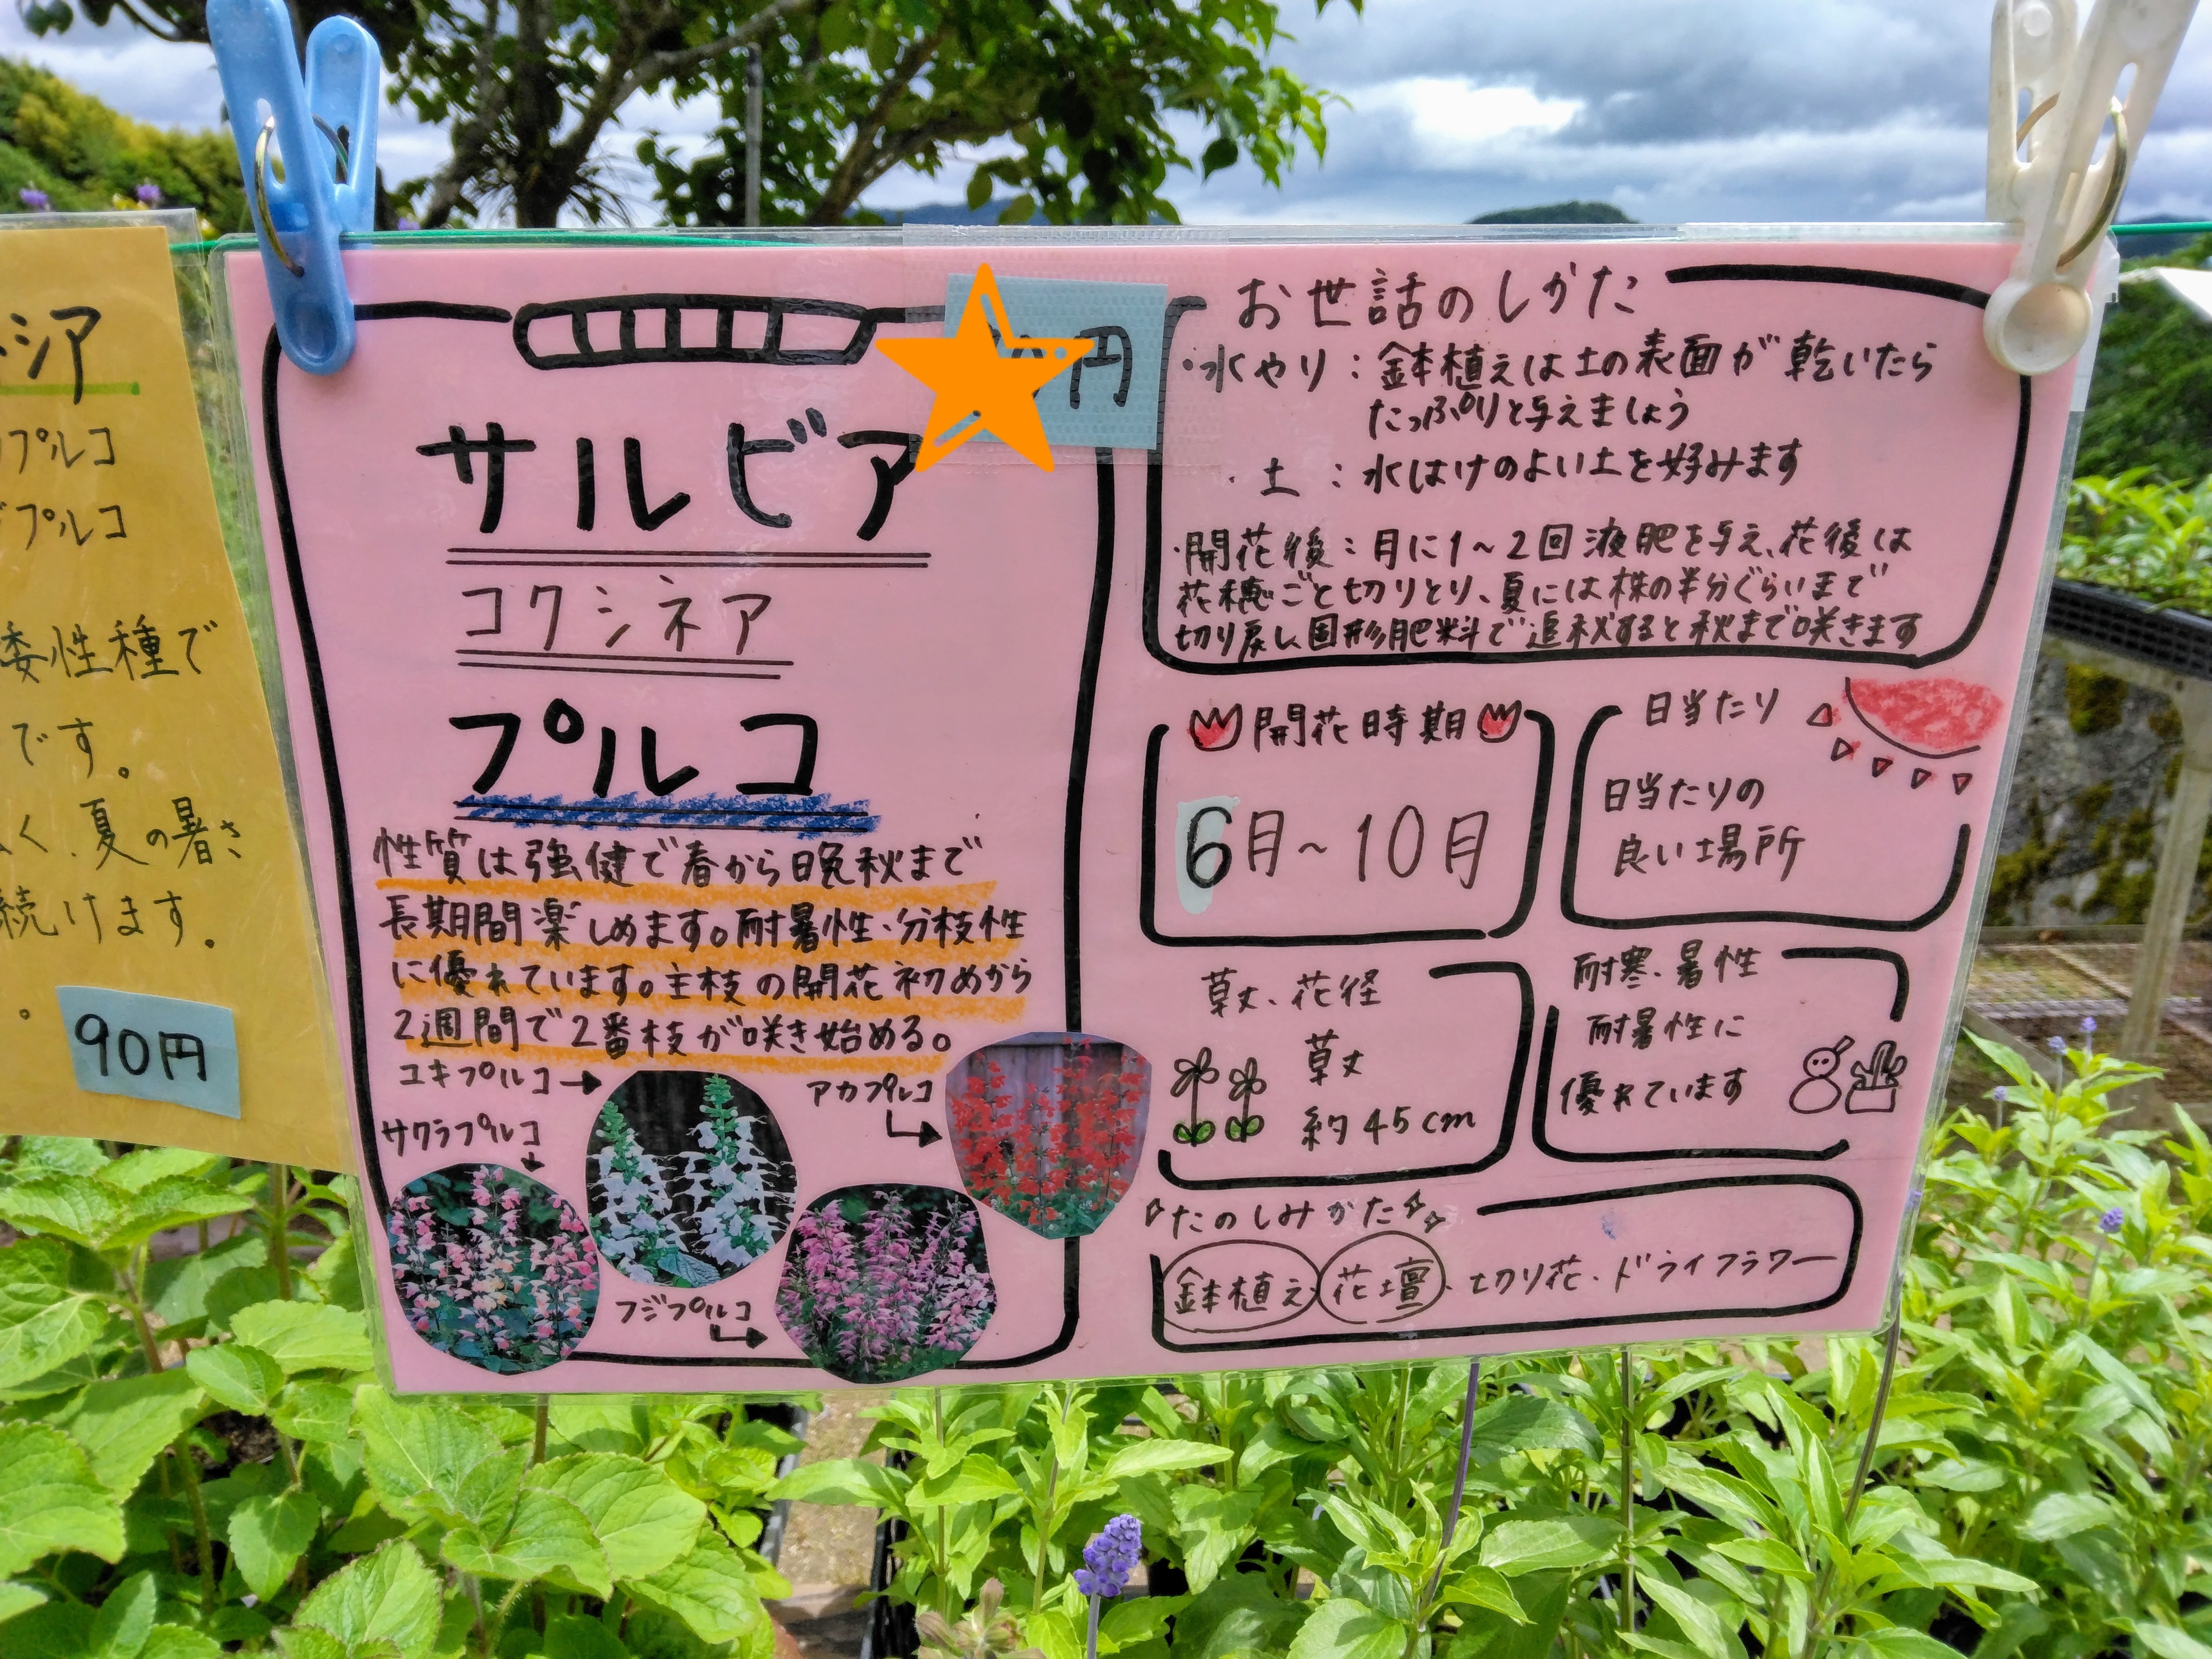 シア
プルコ
プルコ
矮性種で
です。
く、夏の暑さ
続けます。
90円
円
サルビア
コクシネア
プルコ
性質は強健で春から晩秋まで
長期間楽しめます。耐暑性・分枝性
に優れています。主枝の開花初めから
2週間で2番枝が咲き始める。
ユキプルコ→
アカプルコ
サクラプルコ
フジプルコ
お世話のしかた
・水やり：鉢植えは土の表面が乾いたら
たっぷりと与えましょう
・土：水はけのよい土を好みます
・開花後：月に1～2回液肥を与え、花後は
花穂ごと切りとり、夏には株の半分ぐらいまで
切り戻し固形肥料で追秋すると秋まで咲きます
開花時期
6月～10月
日当たり
日当たりの
良い場所
草丈、花径
草丈
約45cm
耐寒、暑性
耐暑性に
優れています
たのしみかた
鉢植え 花壇、切り花・ドライフラワー